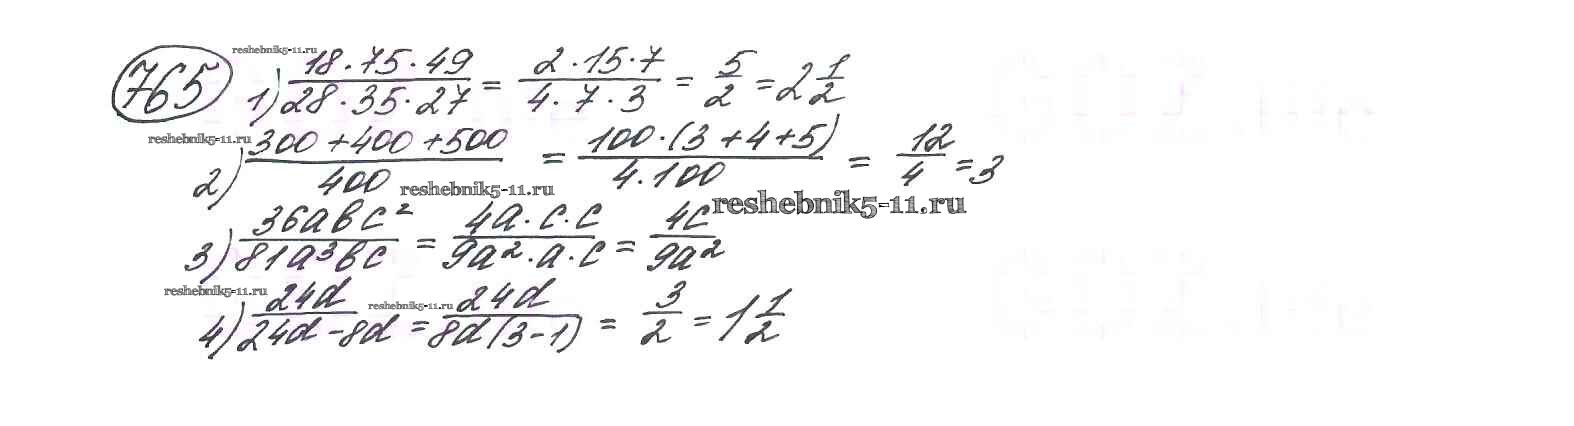 reshebnik5-11.ru
765 1) 18·75·49/28·35·27 = 2·15·7/4·7·3 = 5/2 = 2 1/2
reshebnik5-11.ru
2) 300+400+500/400 = 100·(3+4+5)/4·100 = 12/4 = 3
reshebnik5-11.ru
reshebnik5-11.ru
3) 36abc²/81a³bc = 4a·c·c/9a²·a·c = 4c/9a²
reshebnik5-11.ru
reshebnik5-11.ru
4) 24d/24d-8d = 24d/8d(3-1) = 3/2 = 1 1/2